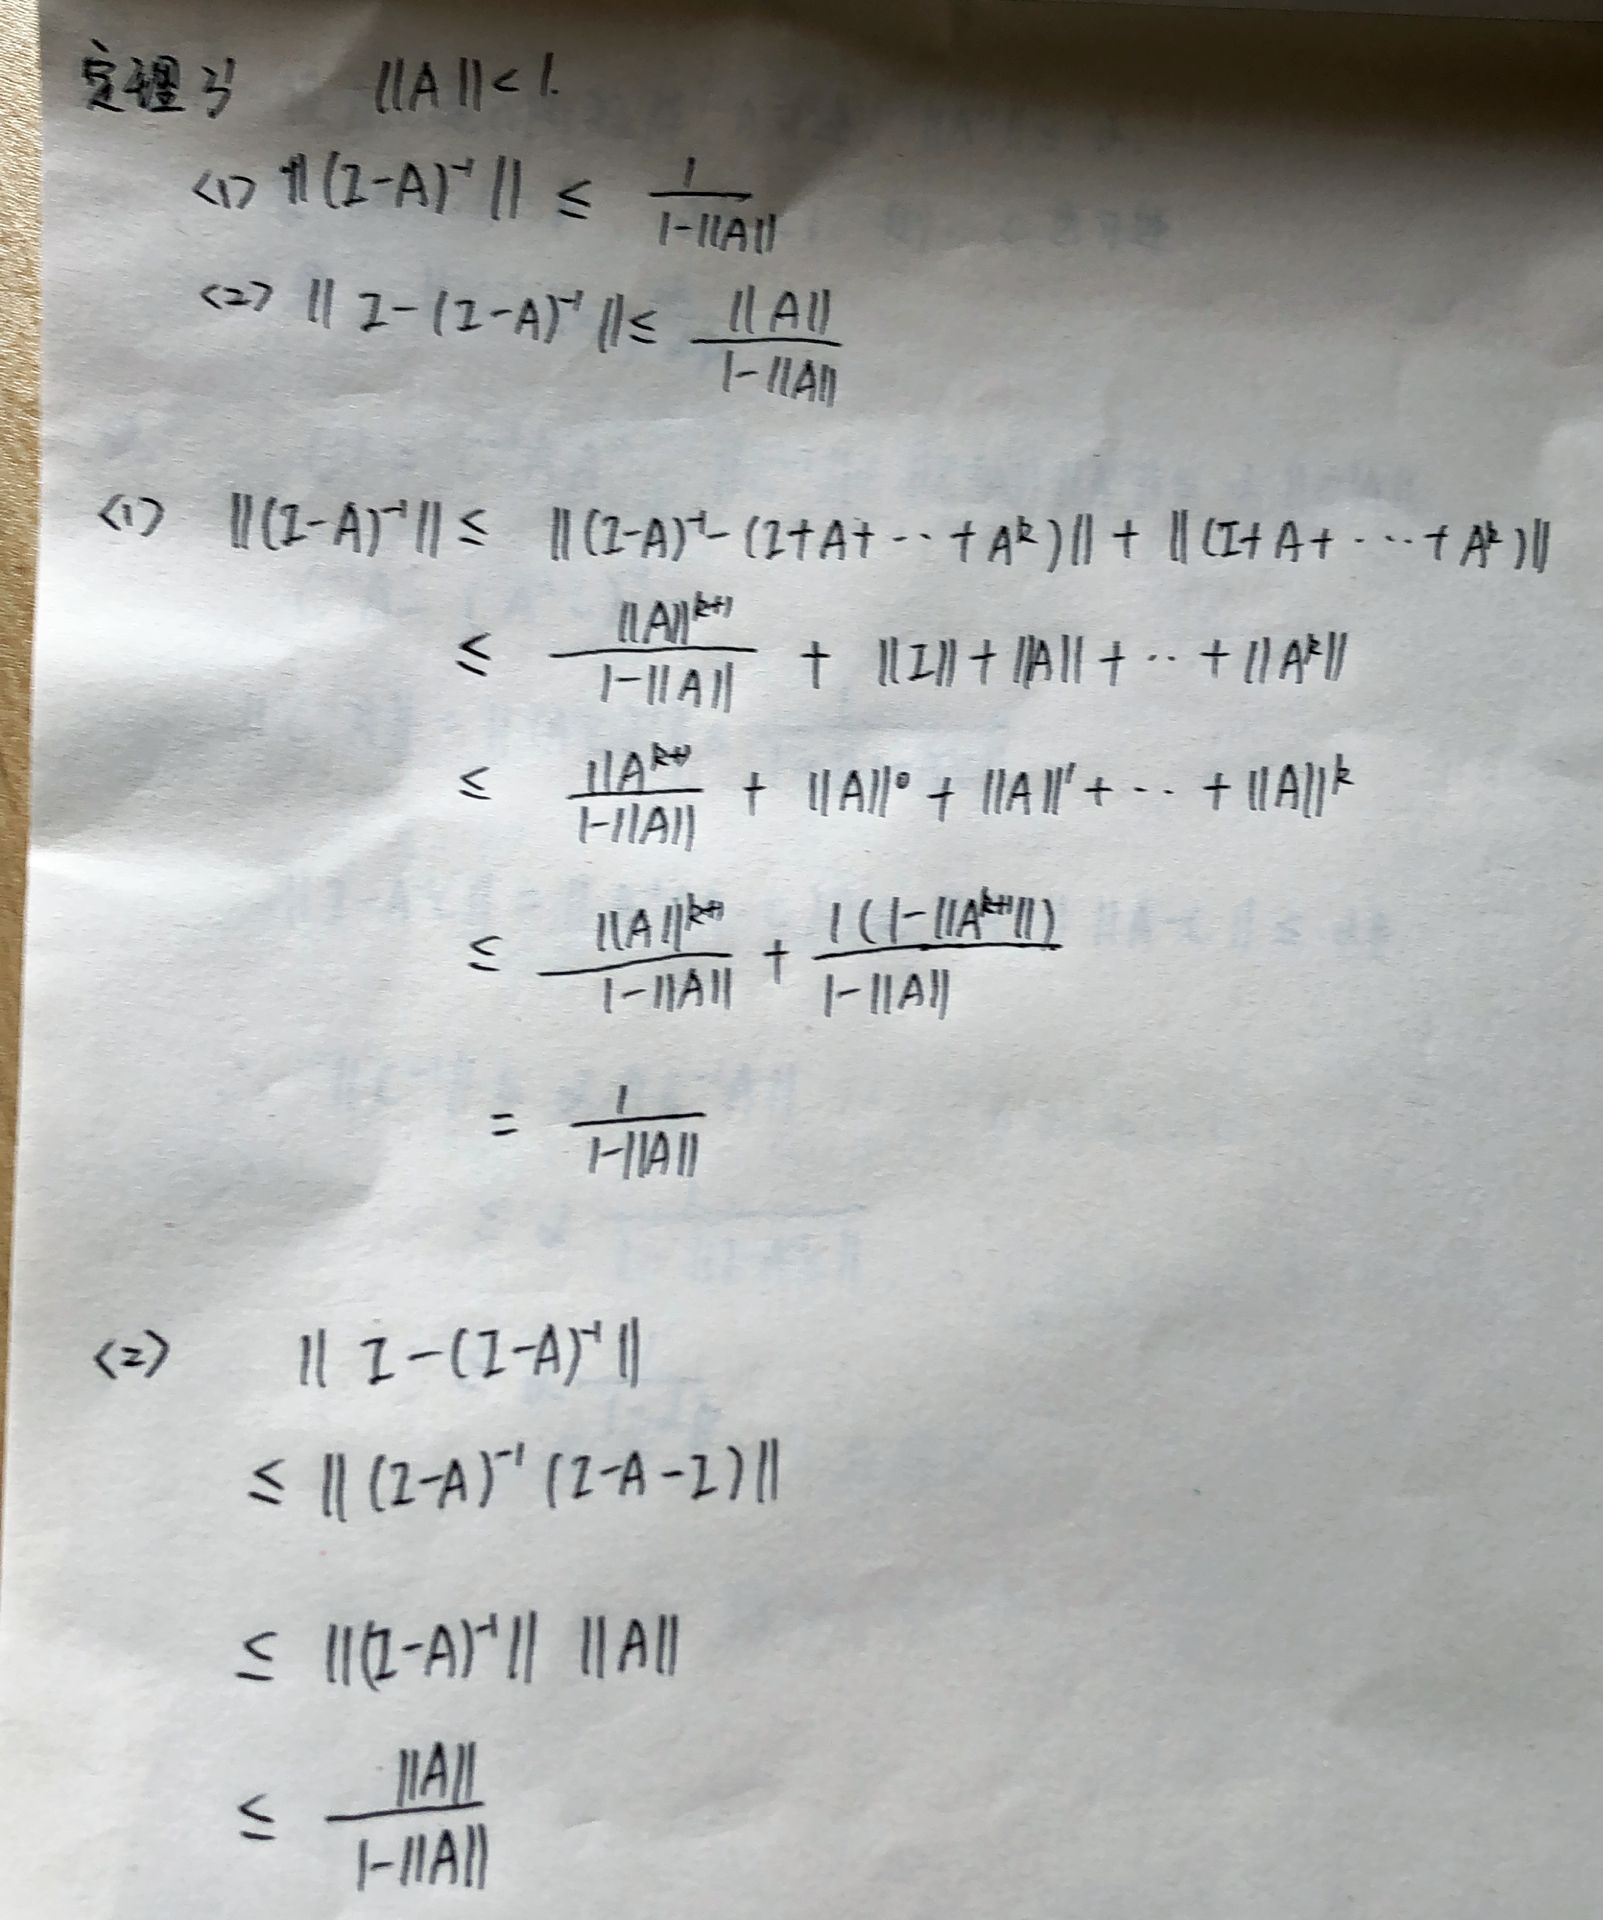 定理3' ||A|| < 1.
<1> ||(I-A)⁻¹|| ≤ 1/(1-||A||)
<2> || I-(I-A)⁻¹ || ≤ ||A||/(1-||A||)
<1> ||(I-A)⁻¹|| ≤ ||(I-A)⁻¹-(I+A+···+Aᵏ)|| + ||(I+A+···+Aᵏ)||
≤ ||A||ᵏ⁺¹/(1-||A||) + ||I||+||A||+···+||Aᵏ||
≤ ||Aᵏ⁺¹/(1-||A||) + ||A||⁰+||A||¹+···+||A||ᵏ
≤ ||A||ᵏ⁺¹/(1-||A||) + 1(1-||Aᵏ⁺¹||)/(1-||A||)
= 1/(1-||A||)
<2> || I-(I-A)⁻¹ ||
≤ ||(I-A)⁻¹(I-A-I)||
≤ ||(I-A)⁻¹|| ||A||
≤ ||A||/(1-||A||)